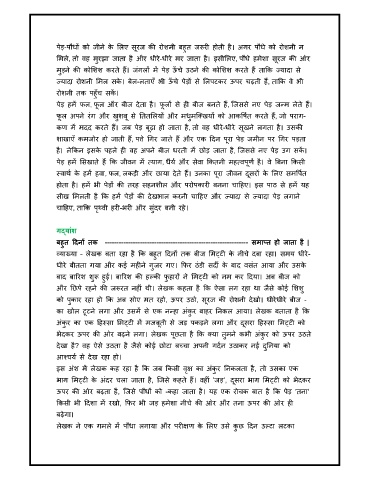 पेड़-पौधों को जीने के लिए सूरज की रोशनी बहुत जरूरी होती है। अगर पौधे को रोशनी न
मिले, तो वह मुरझा जाता है और धीरे-धीरे मर जाता है। इसीलिए, पौधे हमेशा सूरज की ओर
मुड़ने की कोशिश करते हैं। जंगलों में पेड़ ऊँचे उठने की कोशिश करते हैं ताकि ज्यादा से
ज्यादा रोशनी मिल सके। बेल-लताएँ भी ऊँचे पेड़ों से लिपटकर ऊपर चढ़ती हैं, ताकि वे भी
रोशनी तक पहुँच सकें।
पेड़ हमें फल, फूल और बीज देता है। फूलों से ही बीज बनते हैं, जिससे नए पेड़ जन्म लेते हैं।
फूल अपने रंग और खुशबू से तितलियों और मधुमक्खियों को आकर्षित करते हैं, जो पराग-
कण में मदद करते हैं। जब पेड़ बूढ़ा हो जाता है, तो वह धीरे-धीरे सूखने लगता है। उसकी
शाखाएँ कमजोर हो जाती हैं, पत्ते गिर जाते हैं और एक दिन पूरा पेड़ जमीन पर गिर पड़ता
है। लेकिन इसके पहले ही वह अपने बीज धरती में छोड़ जाता है, जिससे नए पेड़ उग सकें।
पेड़ हमें सिखाते हैं कि जीवन में त्याग, धैर्य और सेवा कितनी महत्वपूर्ण है। वे बिना किसी
स्वार्थ के हमें हवा, फल, लकड़ी और छाया देते हैं। उनका पूरा जीवन दूसरों के लिए समर्पित
होता है। हमें भी पेड़ों की तरह सहनशील और परोपकारी बनना चाहिए। इस पाठ से हमें यह
सीख मिलती है कि हमें पेड़ों की देखभाल करनी चाहिए और ज्यादा से ज्यादा पेड़ लगाने
चाहिए, ताकि पृथ्वी हरी-भरी और सुंदर बनी रहे।
गद्यांश
बहुत दिनों तक ------------------------------------------------ समाप्त हो जाता है |
व्याख्या - लेखक बता रहा है कि बहुत दिनों तक बीज मिट्टी के नीचे दबा रहा। समय धीरे-
धीरे बीतता गया और कई महीने गुजर गए। फिर ठंडी सर्दी के बाद वसंत आया और उसके
बाद बारिश शुरू हुई। बारिश की हल्की फुहारों ने मिट्टी को नम कर दिया। अब बीज को
और छिपे रहने की जरूरत नहीं थी। लेखक कहता है कि ऐसा लग रहा था जैसे कोई शिशु
को पुकार रहा हो कि अब सोए मत रहो, ऊपर उठो, सूरज की रोशनी देखो। धीरेधीरे बीज -
का खोल टूटने लगा और उसमें से एक नन्हा अंकुर बाहर निकल आया। लेखक बताता है कि
अंकुर का एक हिस्सा मिट्टी में मजबूती से जड़ पकड़ने लगा और दूसरा हिस्सा मिट्टी को
भेदकर ऊपर की ओर बढ़ने लगा। लेखक पूछता है कि क्या तुमने कभी अंकुर को ऊपर उठते
देखा है? वह ऐसे उठता है जैसे कोई छोटा बच्चा अपनी गर्दन उठाकर नई दुनिया को
आश्चर्य से देख रहा हो।
इस अंश में लेखक कह रहा है कि जब किसी वृक्ष का अंकुर निकलता है, तो उसका एक
भाग मिट्टी के अंदर चला जाता है, जिसे कहते हैं। वहीं 'जड़', दूसरा भाग मिट्टी को भेदकर
ऊपर की ओर बढ़ता है, जिसे पौधों को -कहा जाता है। यह एक रोचक बात है कि पेड़ 'तना'
किसी भी दिशा में रखो, फिर भी जड़ हमेशा नीचे की ओर और तना ऊपर की ओर ही
बढ़ेगा।
लेखक ने एक गमले में पौधा लगाया और परीक्षण के लिए उसे कुछ दिन उल्टा लटका